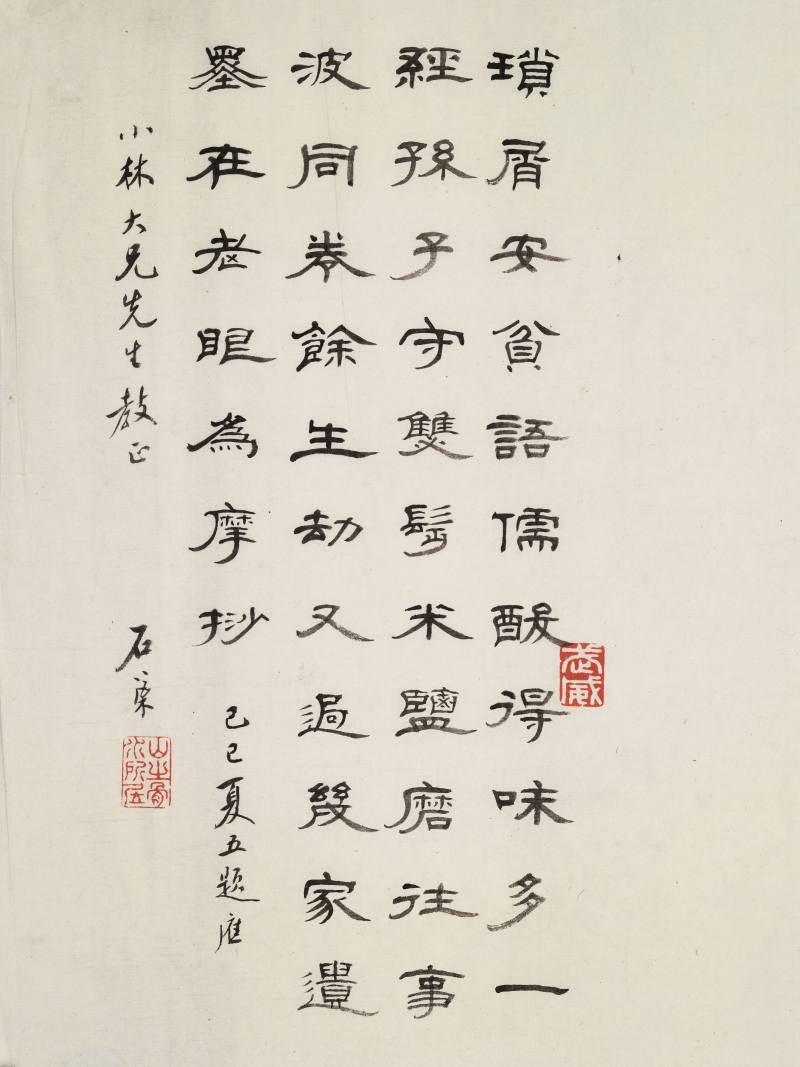 瑣屑安貧語儒酸得味多一
經孫子守雙髩米鹽磨往事
波同卷餘生劫又過幾家遺
墨在老眼為摩挱
己巳夏五題應
小林大兄先生教正
石
武威